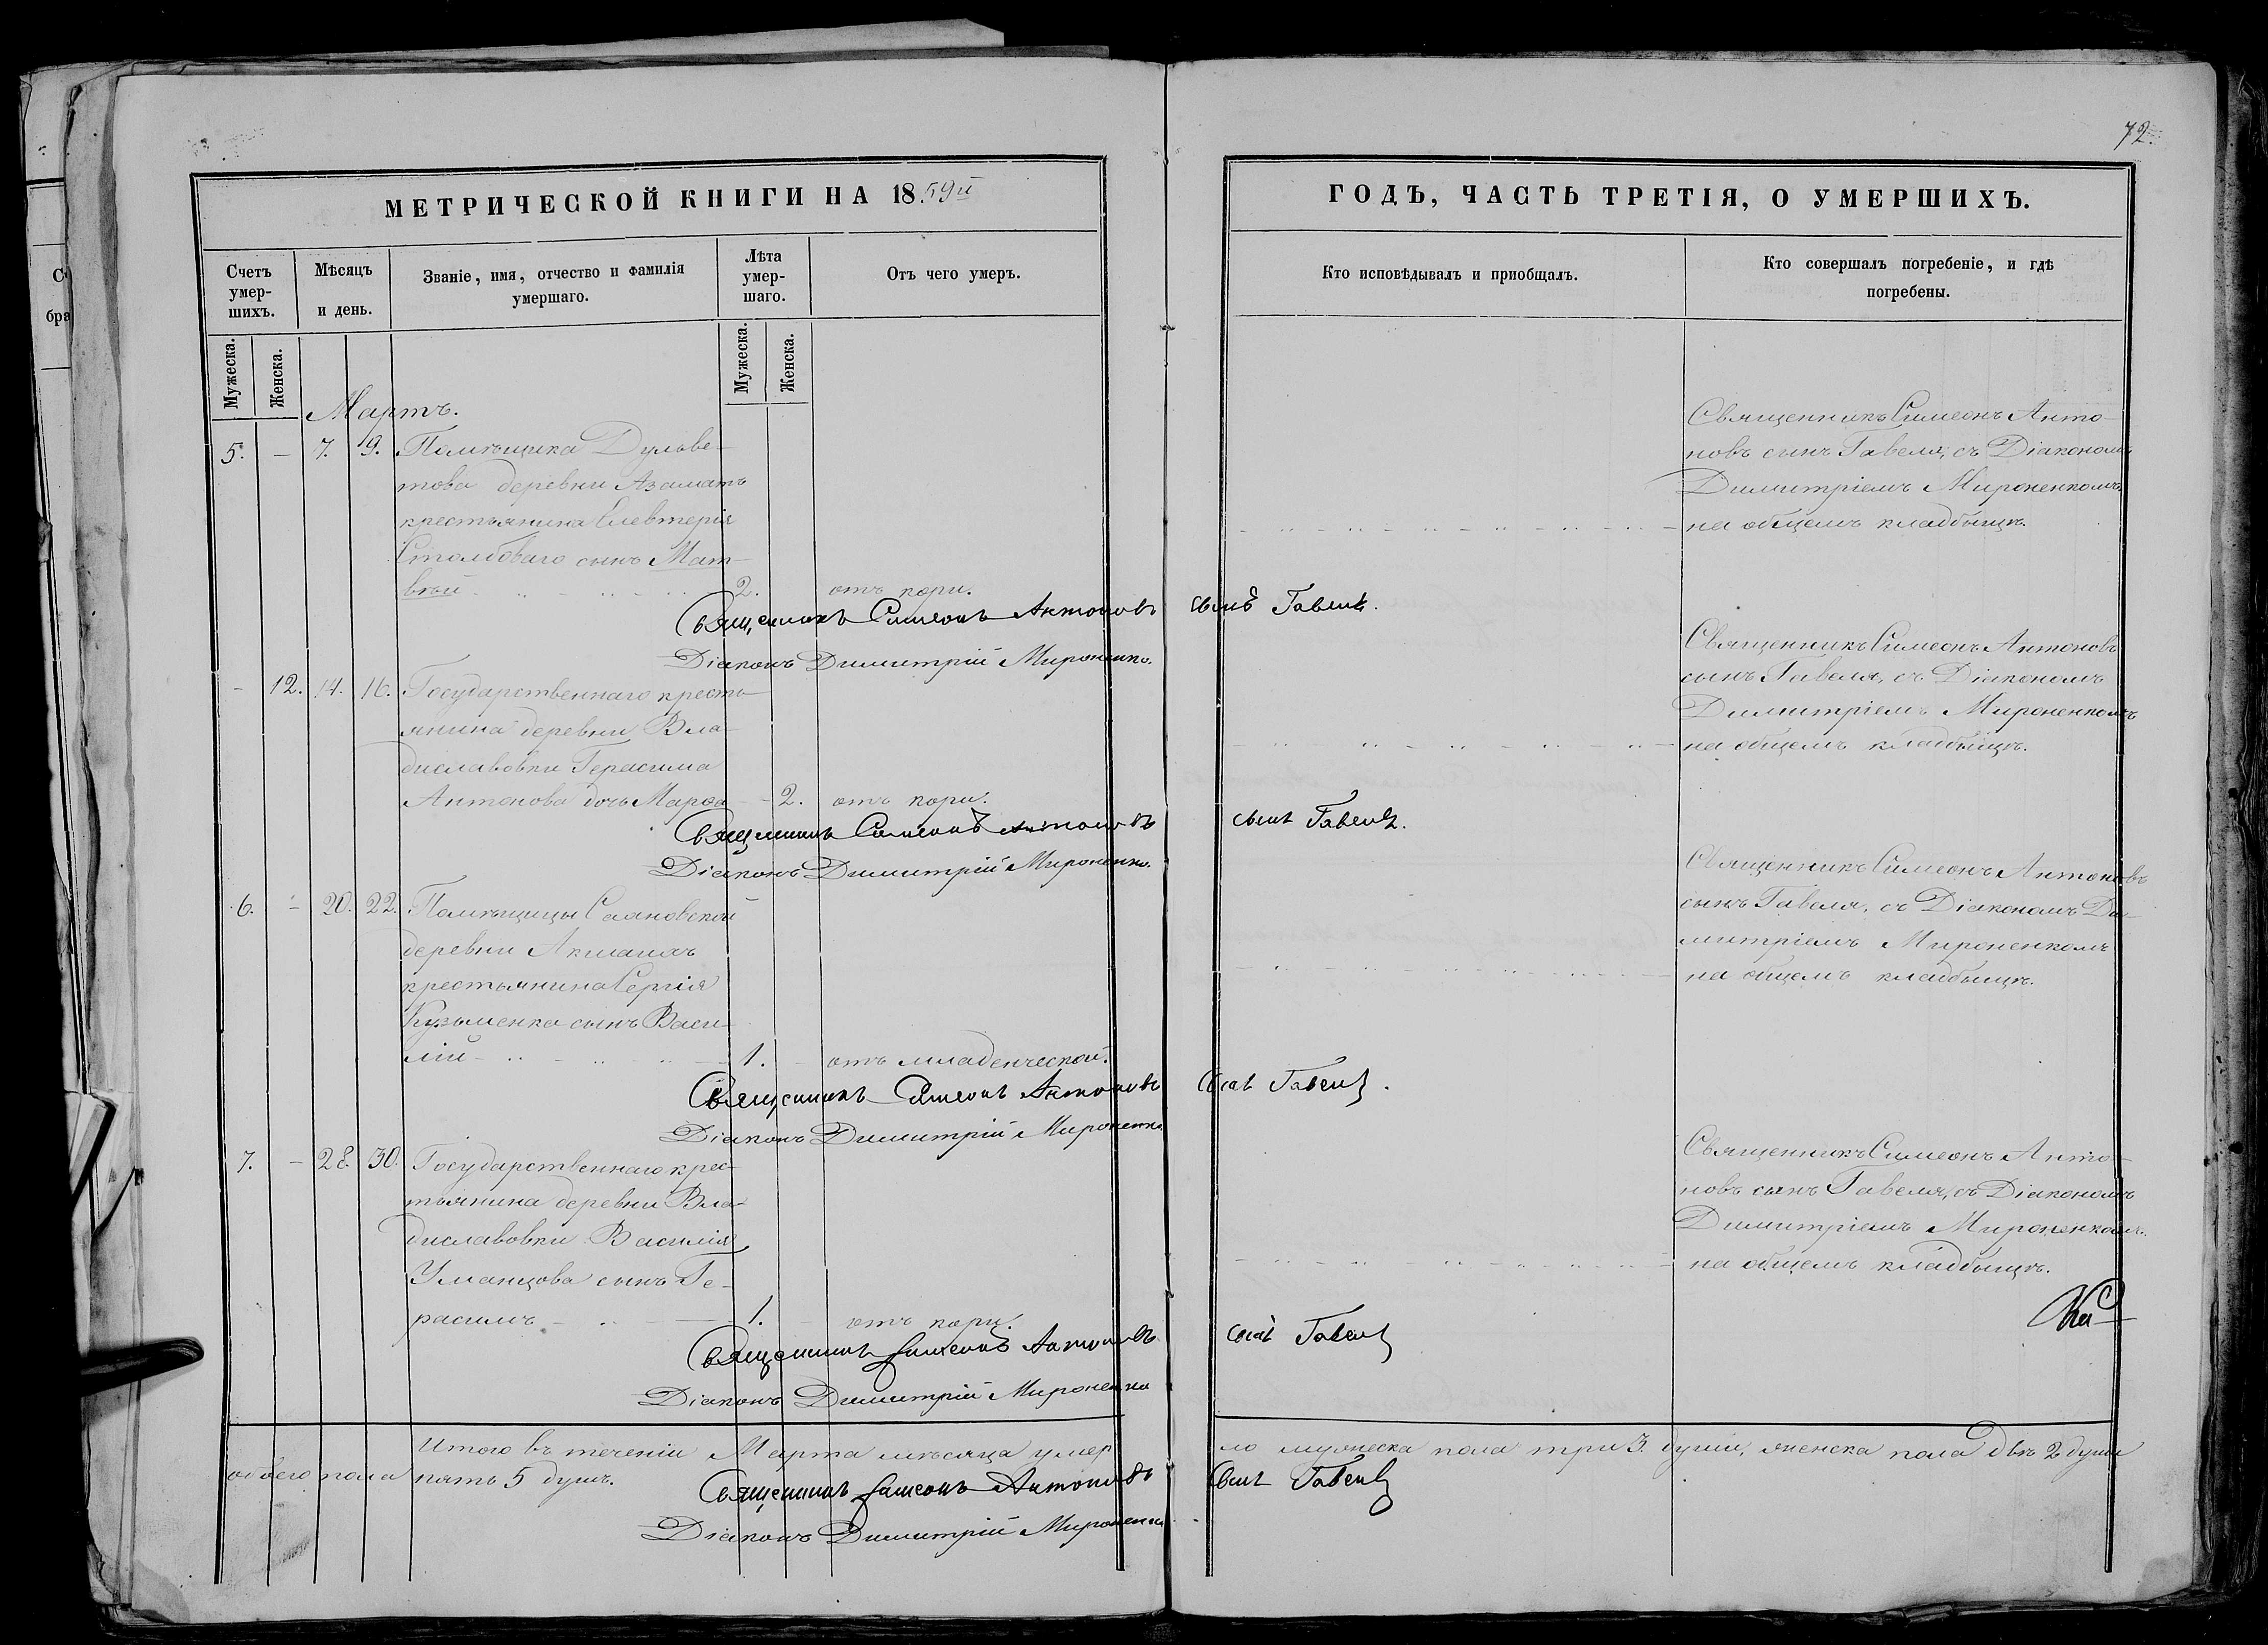 72.
МЕТРИЧЕСКОЙ КНИГИ НА 1859й
ГОДЪ, ЧАСТЬ ТРЕТІЯ, О УМЕРШИХЪ.
Счетъ умер-
шихъ.
Мѣсяцъ
и день.
Званіе, имя, отчество и фамилія
умершаго.
Лѣта
умер-
шаго.
Отъ чего умеръ.
Кто исповѣдывалъ и пріобщалъ.
Кто совершалъ погребеніе, и гдѣ
погребены.
Мужеска.
Женска.
Мужеска.
Женска.
Мартъ.
5. — 7. 9. Помѣщика Дульве-
това деревни Азаматъ
крестьянина Елевтерія
Столбоваго сынъ Мат-
вѣй 2. отъ кори.
Священникъ Симеонъ Анто-
новъ сынъ Гавеля, съ Діакономъ
Димитріемъ Мироненкомъ
на общемъ кладбыщѣ.
Священникъ Симеонъ Антоновъ сынъ Гавеля.
Діаконъ Димитрій Мироненко.
— 12. 14. 16. Государственнаго кресть-
янина деревни Вла-
диславовки Герасима
Антонова дочь Марѳа — 2. отъ кори.
Священникъ Симеонъ Антоновъ
сынъ Гавеля, съ Діакономъ
Димитріемъ Мироненкомъ
на общемъ кладбыщѣ.
Священникъ Симеонъ Антоновъ сынъ Гавеля.
Діаконъ Димитрій Мироненко.
6. — 20. 22. Помѣщицы Саяновской
деревни Акманахъ
крестьянина Сергія
Кузьменка сынъ Васи-
лій 1. — отъ младенческой.
Священникъ Симеонъ Антоновъ
сынъ Гавеля, съ Діакономъ Ди-
митріемъ Мироненкомъ
на общемъ кладбыщѣ.
Священникъ Симеонъ Антоновъ сынъ Гавеля.
Діаконъ Димитрій Мироненко
7. — 28. 30. Государственнаго крес-
тьянина деревни Вла-
диславовки Василія
Уманцова сынъ Ге-
расимъ 1. — отъ кори.
Священникъ Симеонъ Анто-
новъ сынъ Гавеля, съ Діакономъ
Димитріемъ Мироненкомъ.
на общемъ кладбыщѣ.
Священникъ Симеонъ Антоновъ сынъ Гавеля
Діаконъ Димитрій Мироненко
Итого въ теченіи Марта мѣсяца умерло мужеска пола три 3. души, женска пола двѣ 2 души
обоего пола пять 5 душъ.
Священникъ Симеонъ Антоновъ сынъ Гавеля
Діаконъ Димитрій Мироненко